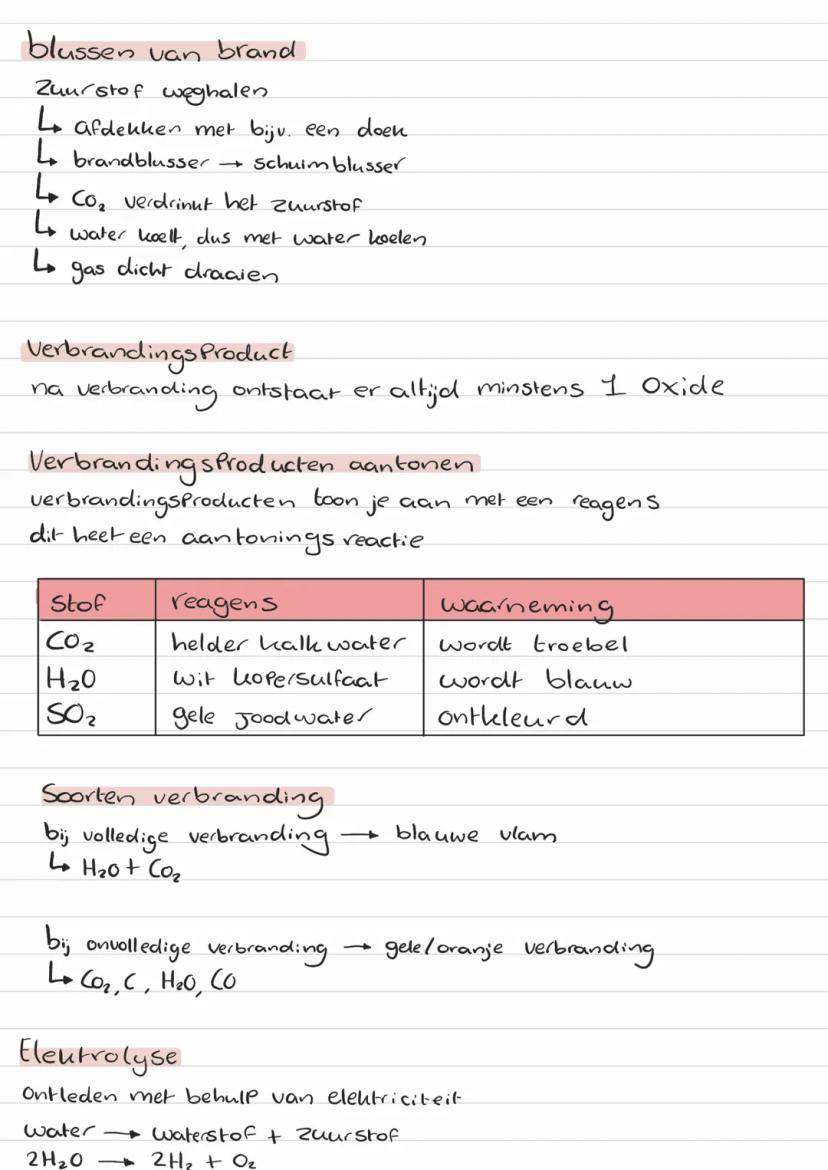 blussen van brand
zuurstof weghalen
↳ afdekken met bijv. een doek
↳ brandblusser → schuimblusser
↳ CO₂ verdrinkt het zuurstof
↳ water koelt, dus met water koelen
↳ gas dicht draaien
Verbrandingsproduct
na verbranding ontstaat er altijd minstens 1 oxide
Verbrandingsproducten aantonen
verbrandingsproducten toon je aan met een reagens
dit heet een aantonings reactie
stof reagens waarneming
CO₂ helder kalkwater wordt troebel
H₂O wit kopersulfaat wordt blauw
SO₂ gele joodwater ontkleurd
Soorten verbranding
bij volledige verbranding → blauwe vlam
↳ H₂O + CO₂
bij onvolledige verbranding → gele/oranje verbranding
↳ CO₂, C, H₂O, CO
Elektrolyse
Ontleden met behulp van elektriciteit
water → waterstof + zuurstof
2H₂O → 2H₂ + O₂